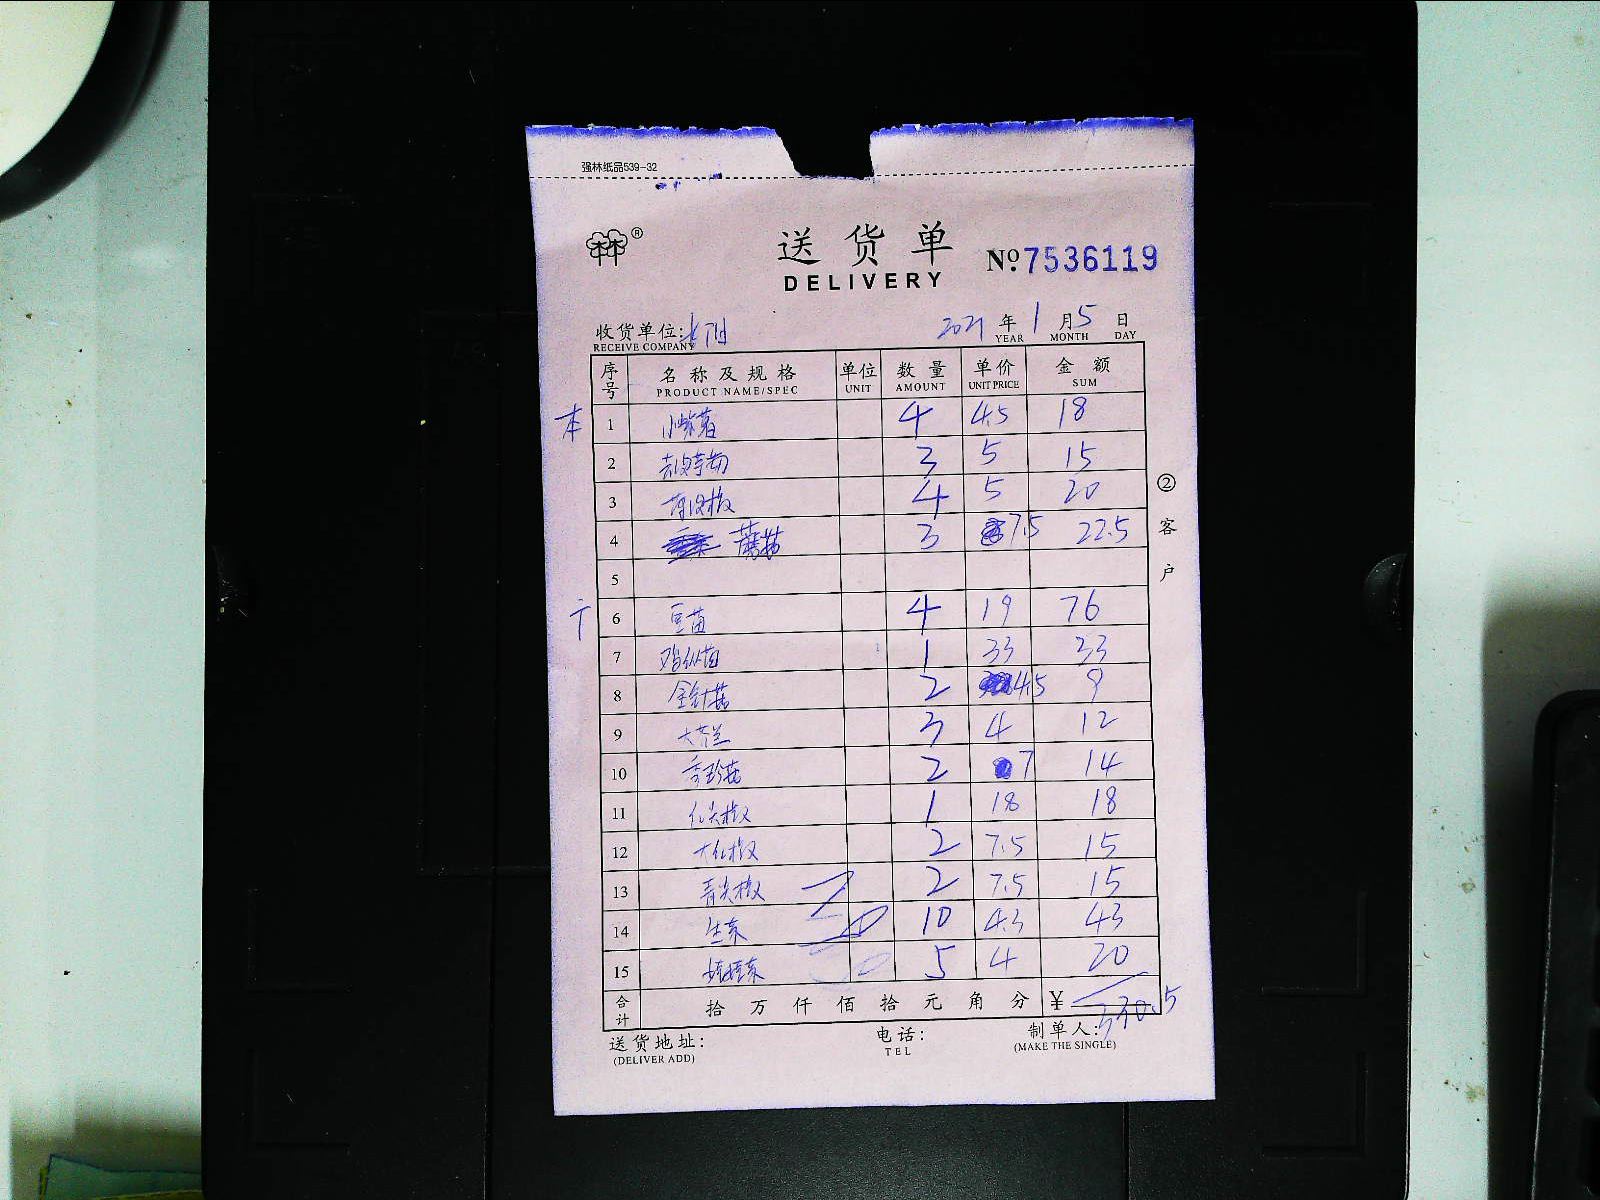 强林纸品539-32
®
送货单 №7536119
DELIVERY
收货单位: 2021 年 1 月 5 日
RECEIVE COMPANY YEAR MONTH DAY
序号 名称及规格 单位 数量 单价 金额
PRODUCT NAME/SPEC UNIT AMOUNT UNIT PRICE SUM
本 1 小紫薯 4 4.5 18
2 3 5 15
3 4 5 20
4 蘑菇 3 7.5 22.5
5
6 豆苗 4 19 76
7 鸡枞菌 1 33 33
8 金针菇 2 4.5 9
9 大芥兰 3 4 12
10 秀珍菇 2 7 14
11 红尖椒 1 18 18
12 大红椒 2 7.5 15
13 青尖椒 2 7.5 15
14 生菜 10 4.3 43
15 娃娃菜 5 4 20
合计 拾 万 仟 佰 拾 元 角 分 ¥ 330.5
送货地址: 电话: 制单人:
(DELIVER ADD) TEL (MAKE THE SINGLE)
②客户